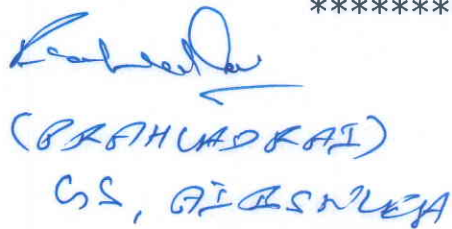 *******
(PRAHLADRAI)
GS, AIBSNLEA